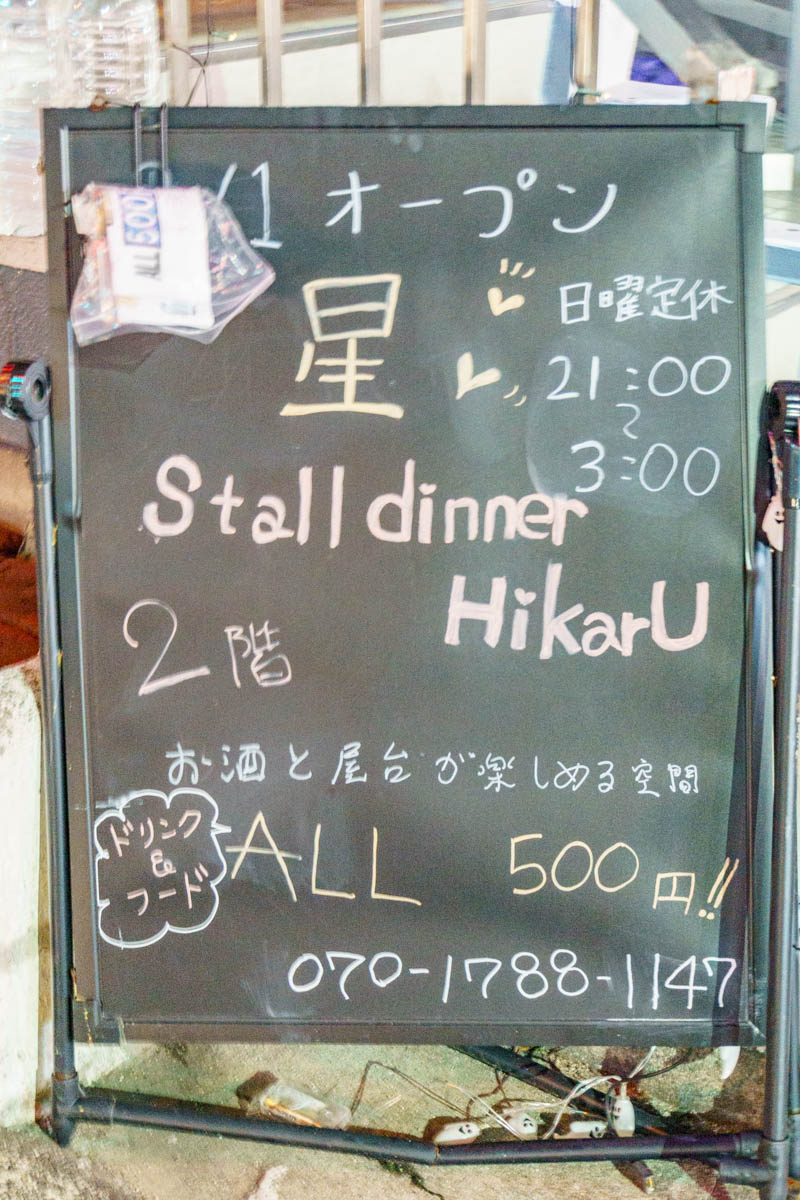 /1 オープン
星
日曜定休
21:00
~
3:00
Stall dinner
HikarU
2階
お酒と屋台が楽しめる空間
ドリンク
&
フード
ALL 500円!!
070-1788-1147
ALL 500